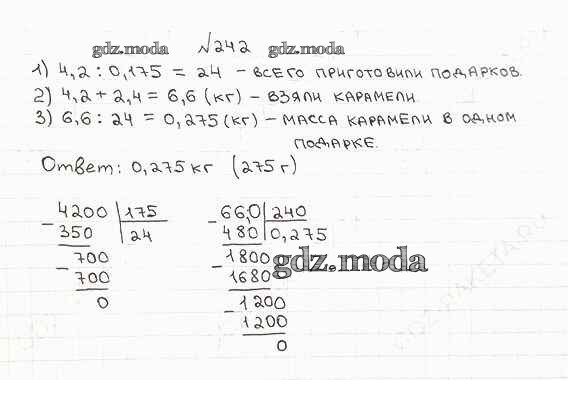 gdz.moda №242 gdz.moda
1) 4,2 : 0,175 = 24 – ВСЕГО ПРИГОТОВИЛИ ПОДАРКОВ.
2) 4,2 + 2,4 = 6,6 (кг) – ВЗЯЛИ КАРАМЕЛИ
3) 6,6 : 24 = 0,275 (кг) – МАССА КАРАМЕЛИ В ОДНОМ
ПОДАРКЕ.
Ответ: 0,275 кг (275 г)
4200 175
– 350 24
700
– 700
0
66,0 240
– 480 0,275
1800
– 1680
1200
– 1200
0
gdz.moda
GDZ-RAKETA.RU